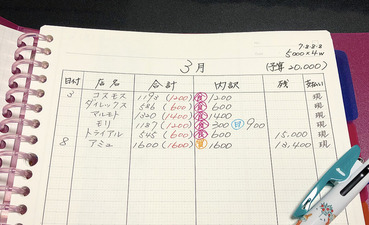 7·8·8·8
5000×4w
3月
(予算 20,000)
日付 店名 合計 内訳 残 支払い
3 コスモス 1193 (1200) 食 1200 現
ダイレックス 586 (600) 食 600 現
マルモト 1320 (1400) 食 1400 現
モリ 1187 (1200) 食 300 日 900 現
トライアル 545 (600) 食 600 15,000 現
8 アミュ 1600 (1600) 13,400 現